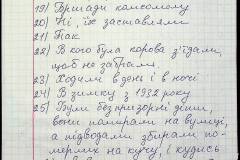 19) Бригади комсомолу
20) Ні, їх заставляли
21) Так
22) В кого була корова з'їдали,
щоб не забрали.
23) Ходили в дені і в ночі
24) В зимку з 1932 року
25) Були безпризорні діти,
вони помирали на вулиці,
а підводами збирали по-
мерлих на кучу, і кудись